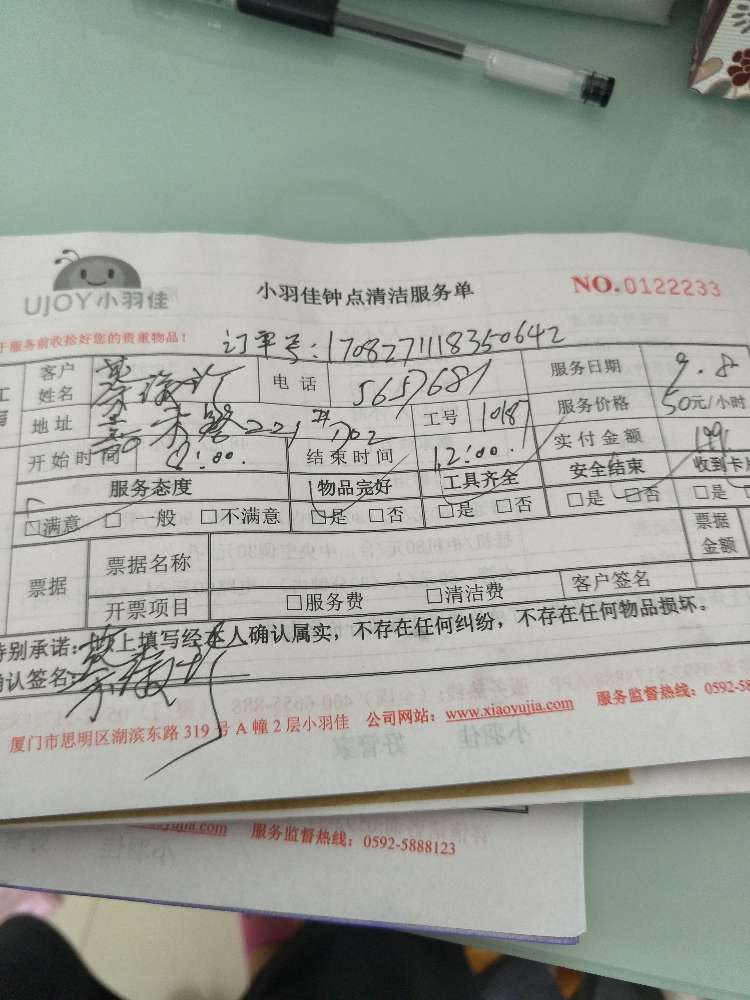 UJOY小羽佳
小羽佳钟点清洁服务单
NO.0122233
于服务前收拾好您的贵重物品!
订单号:1708271118350642
客户姓名
电话 5657681
服务日期 9.8
地址 221 702
工号 10187
服务价格 50元/小时
开始时间
结束时间 12:00.
实付金额 199.
服务态度 物品完好 工具齐全 安全结束 收到卡片
□满意 □一般 □不满意 □是 □否 □是 □否 □是 □否 □是
票据 票据名称
票据金额
开票项目 □服务费 □清洁费 客户签名
特别承诺:以上填写经本人确认属实,不存在任何纠纷,不存在任何物品损坏。
确认签名:
厦门市思明区湖滨东路 319 号 A 幢 2 层小羽佳 公司网站:www.xiaoyujia.com 服务监督热线:0592-58
yujia.com 服务监督热线:0592-5888123